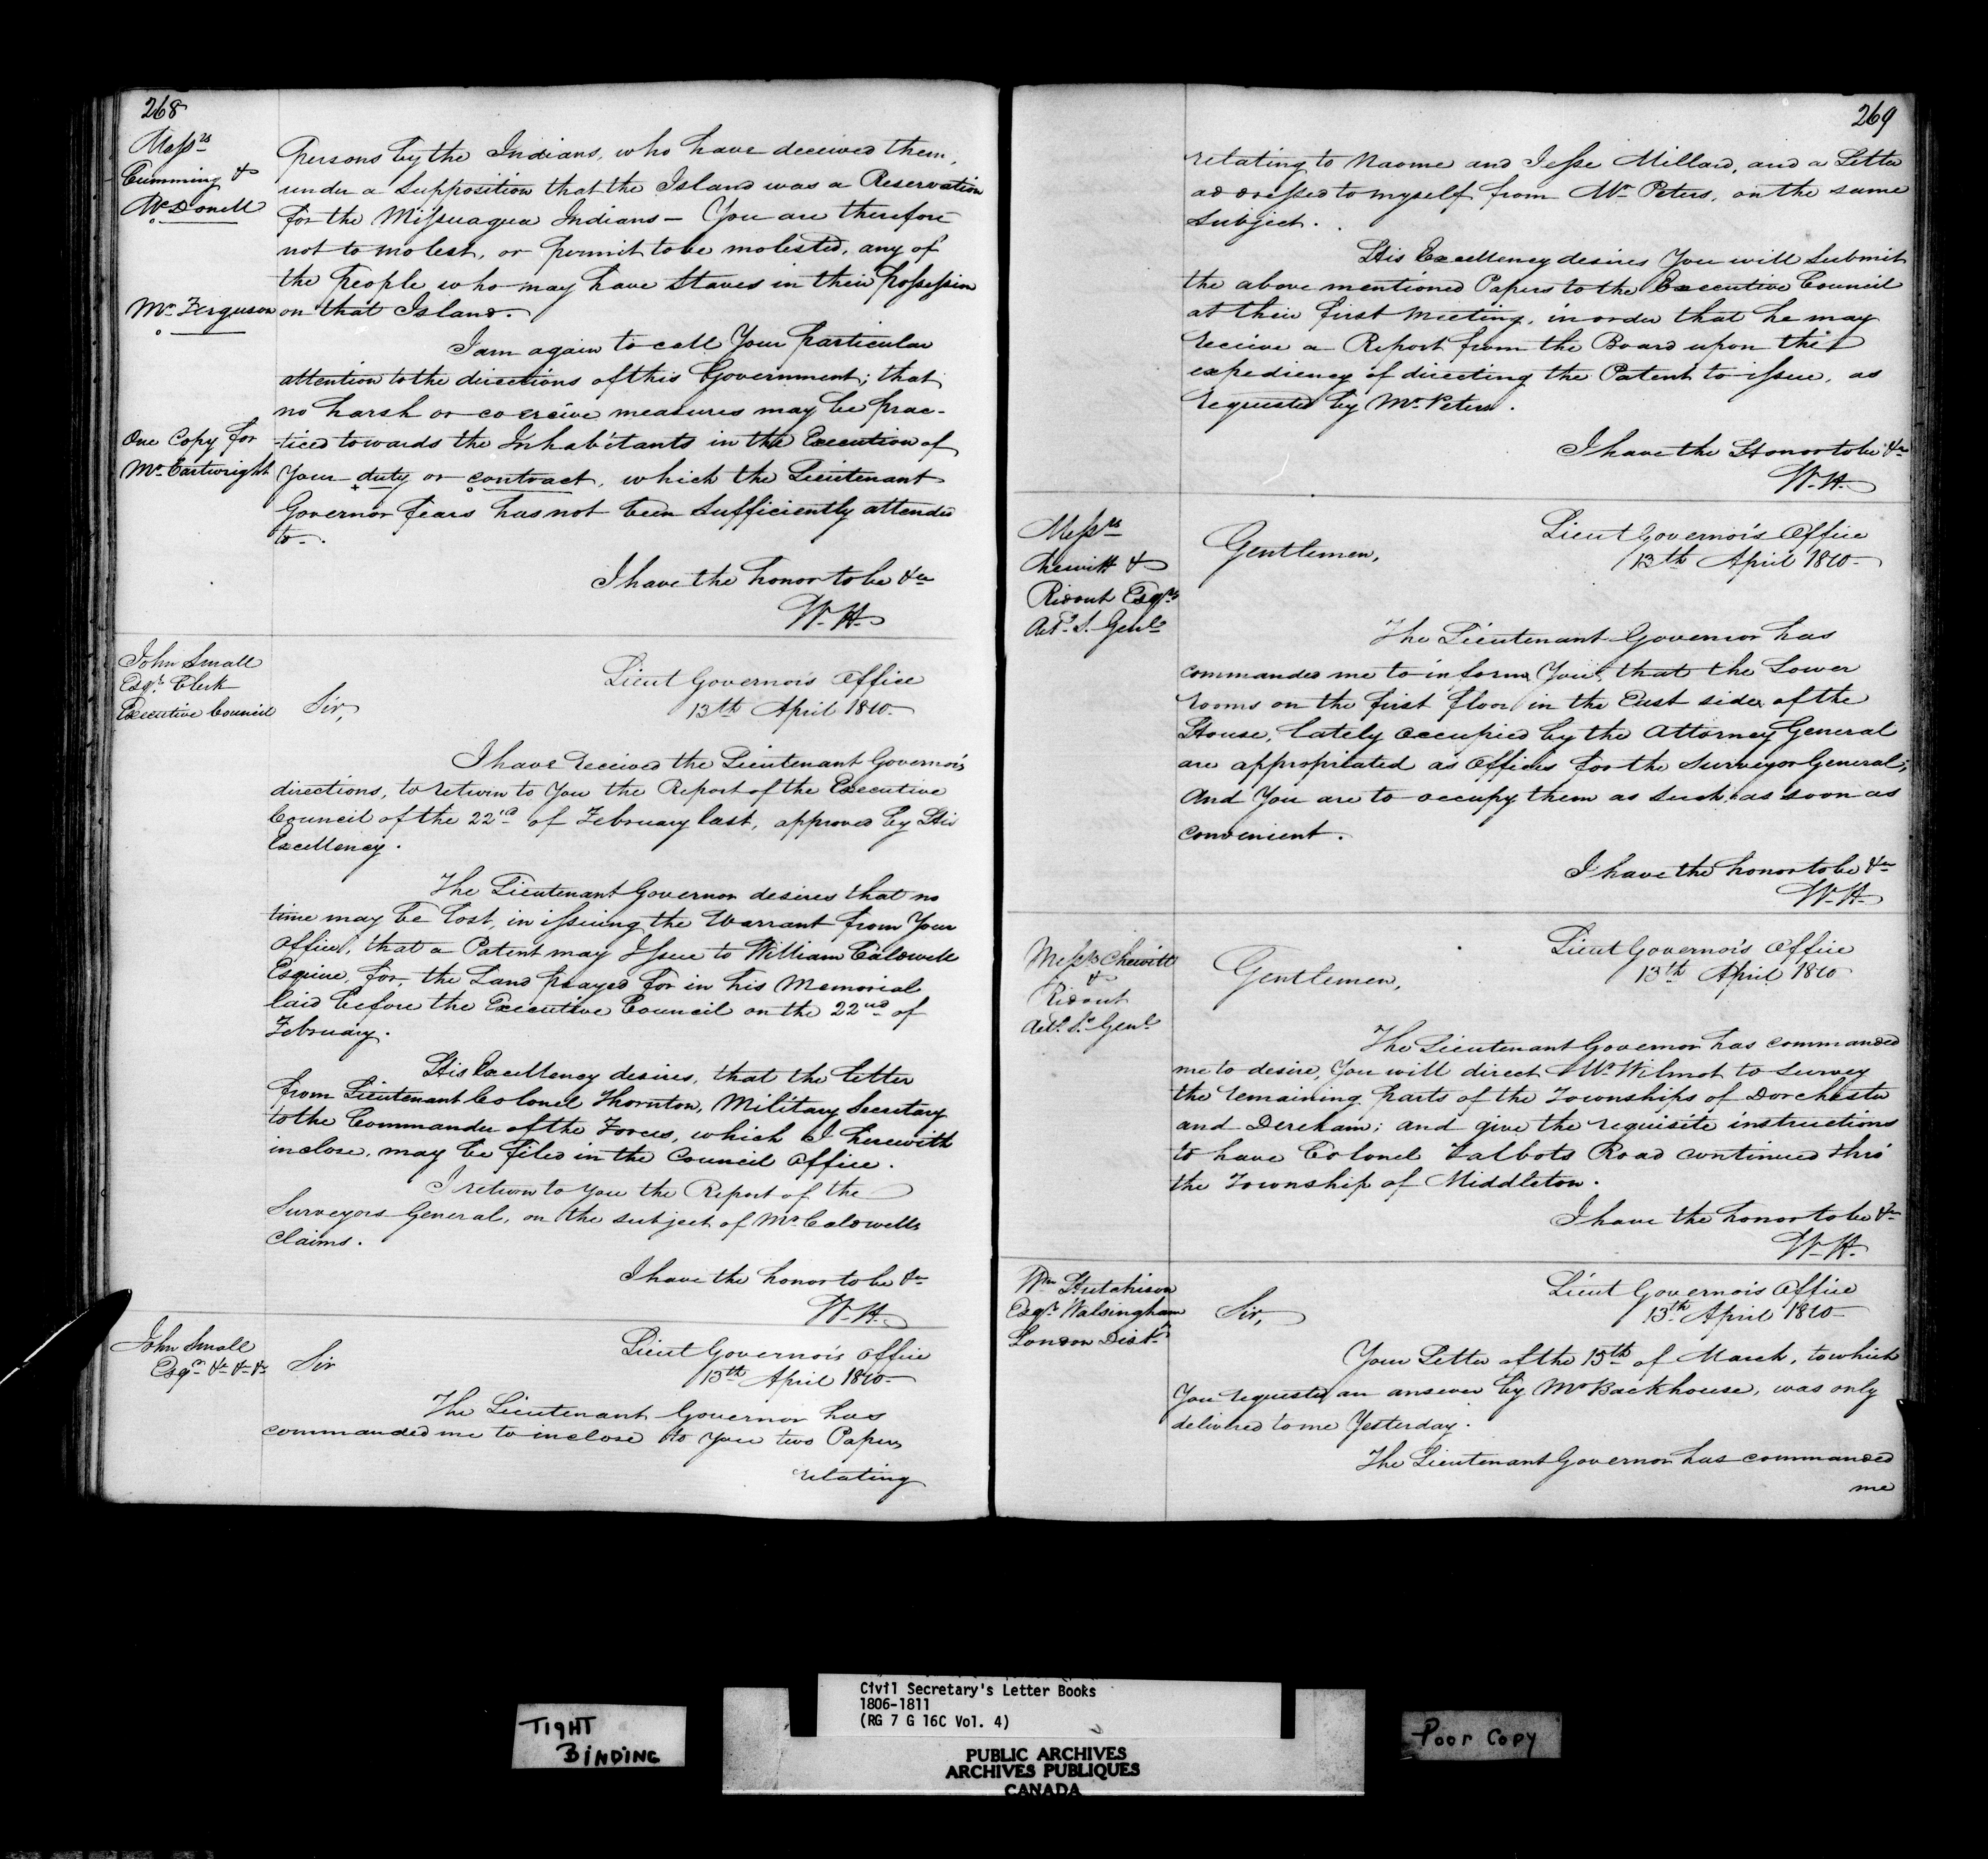 268
Messrs
Cumming &
McDonell
Mr Ferguson
One Copy for
Mr Cartwright
Persons by the Indians, who have deceived them,
under a Supposition that the Island was a Reservation
for the Missuaga Indians — You are therefore
not to molest, or permit to be molested, any of
the People who may have Staves in their possession
on that Island.
I am again to call Your particular
attention to the directions of this Government; that
no harsh or coercive measures may be prac-
-ticed towards the Inhabitants in the Execution of
Your duty or contract, which the Lieutenant
Governor fears has not been Sufficiently attended
to.
I have the honor to be &c
W. H.
John Small
Esqr. Clerk
Executive Council
Lieut Governor's Office
13th April 1810.
Sir,
I have received the Lieutenant Governor's
directions, to return to You the Report of the Executive
Council of the 22nd of February last, approved by His
Excellency.
The Lieutenant Governor desires that no
time may be lost, in issuing the Warrant from Your
Office, that a Patent may Issue to William Caldwell
Esquire, for, the Land prayed for in his Memorial
laid before the Executive Council on the 22nd of
February.
His Excellency desires, that the letter
from Lieutenant Colonel Thornton, Military Secretary
to the Commander of the Forces, which I herewith
inclose, may be filed in the Council Office.
I return to you the Report of the
Surveyors General, on the subject of Mr Caldwells
Claims.
I have the honor to be &c
W. H.
John Small
Esqr. &c &c &c
Lieut Governor's Office
13th April 1810.
Sir
The Lieutenant Governor has
commanded me to inclose to you two Papers
relating
269
relating to Naome and Jesse Millard, and a Letter
addressed to myself from Mr Peters, on the same
Subject.
His Excellency desires You will Submit
the above mentioned Papers to the Executive Council
at their first Meeting, in order that he may
receive a Report from the Board upon the
expediency of directing the Patent to issue, as
requested by Mr Peters.
I have the Honor to be &c
W. H.
Messrs
Chewitt &
Ridout Esqrs
Actg. S. Genl.
Lieut Governor's Office
13th April 1810.
Gentlemen,
The Lieutenant Governor has
commanded me to inform You, that the Lower
rooms on the first floor in the East side of the
House, lately occupied by the Attorney General
are appropriated as Offices for the Surveyor General;
And You are to occupy them as such, as soon as
convenient.
I have the honor to be &c
W. H.
Messrs Chewitt
&
Ridout
Actg. Sr. Genl.
Lieut Governor's Office
13th April 1810
Gentlemen,
The Lieutenant Governor has commanded
me to desire, You will direct Mr Wilmot to survey
the remaining parts of the Townships of Dorchester
and Dereham; and give the requisite instructions
to have Colonel Talbots Road continued thro'
the Township of Middleton.
I have the honor to be &c
W. H.
Wm Hutchison
Esqr. Walsingham
London Distt.
Lieut Governor's Office
13th April 1810
Sir,
Your Letter of the 15th of March, to which
You requested an answer by Mr Backhouse, was only
delivered to me Yesterday.
The Lieutenant Governor has commanded
me
TIGHT
BINDING
Civil Secretary's Letter Books
1806-1811
(RG 7 G 16C Vol. 4)
PUBLIC ARCHIVES
ARCHIVES PUBLIQUES
CANADA
Poor Copy